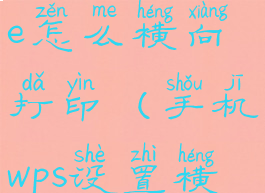 zěn me héng xiàng
e怎么横向
dǎ yìn shǒu jī
打印（手机
shè zhì héng
wps设置横